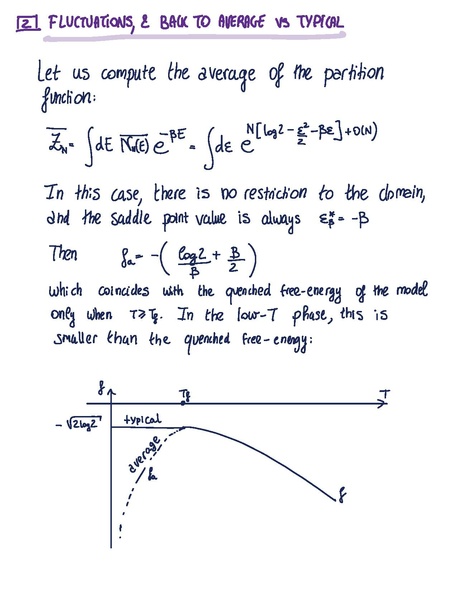 [2] FLUCTUATIONS, & BACK TO AVERAGE vs TYPICAL
Let us compute the average of the partition
function:
\overline{Z_N} = ∫dE \overline{N_N(E)} e^{-βE} = ∫dε e^{N[log2 - ε²/2 - βε] + o(N)}
In this case, there is no restriction to the domain,
and the saddle point value is always ε*_β = -β
Then f_a = -(log2/β + β/2)
which coincides with the quenched free-energy of the model
only when T ≥ T_f. In the low-T phase, this is
smaller than the quenched free-energy:
f T_f T
-√2log2 typical
average
f_a
f